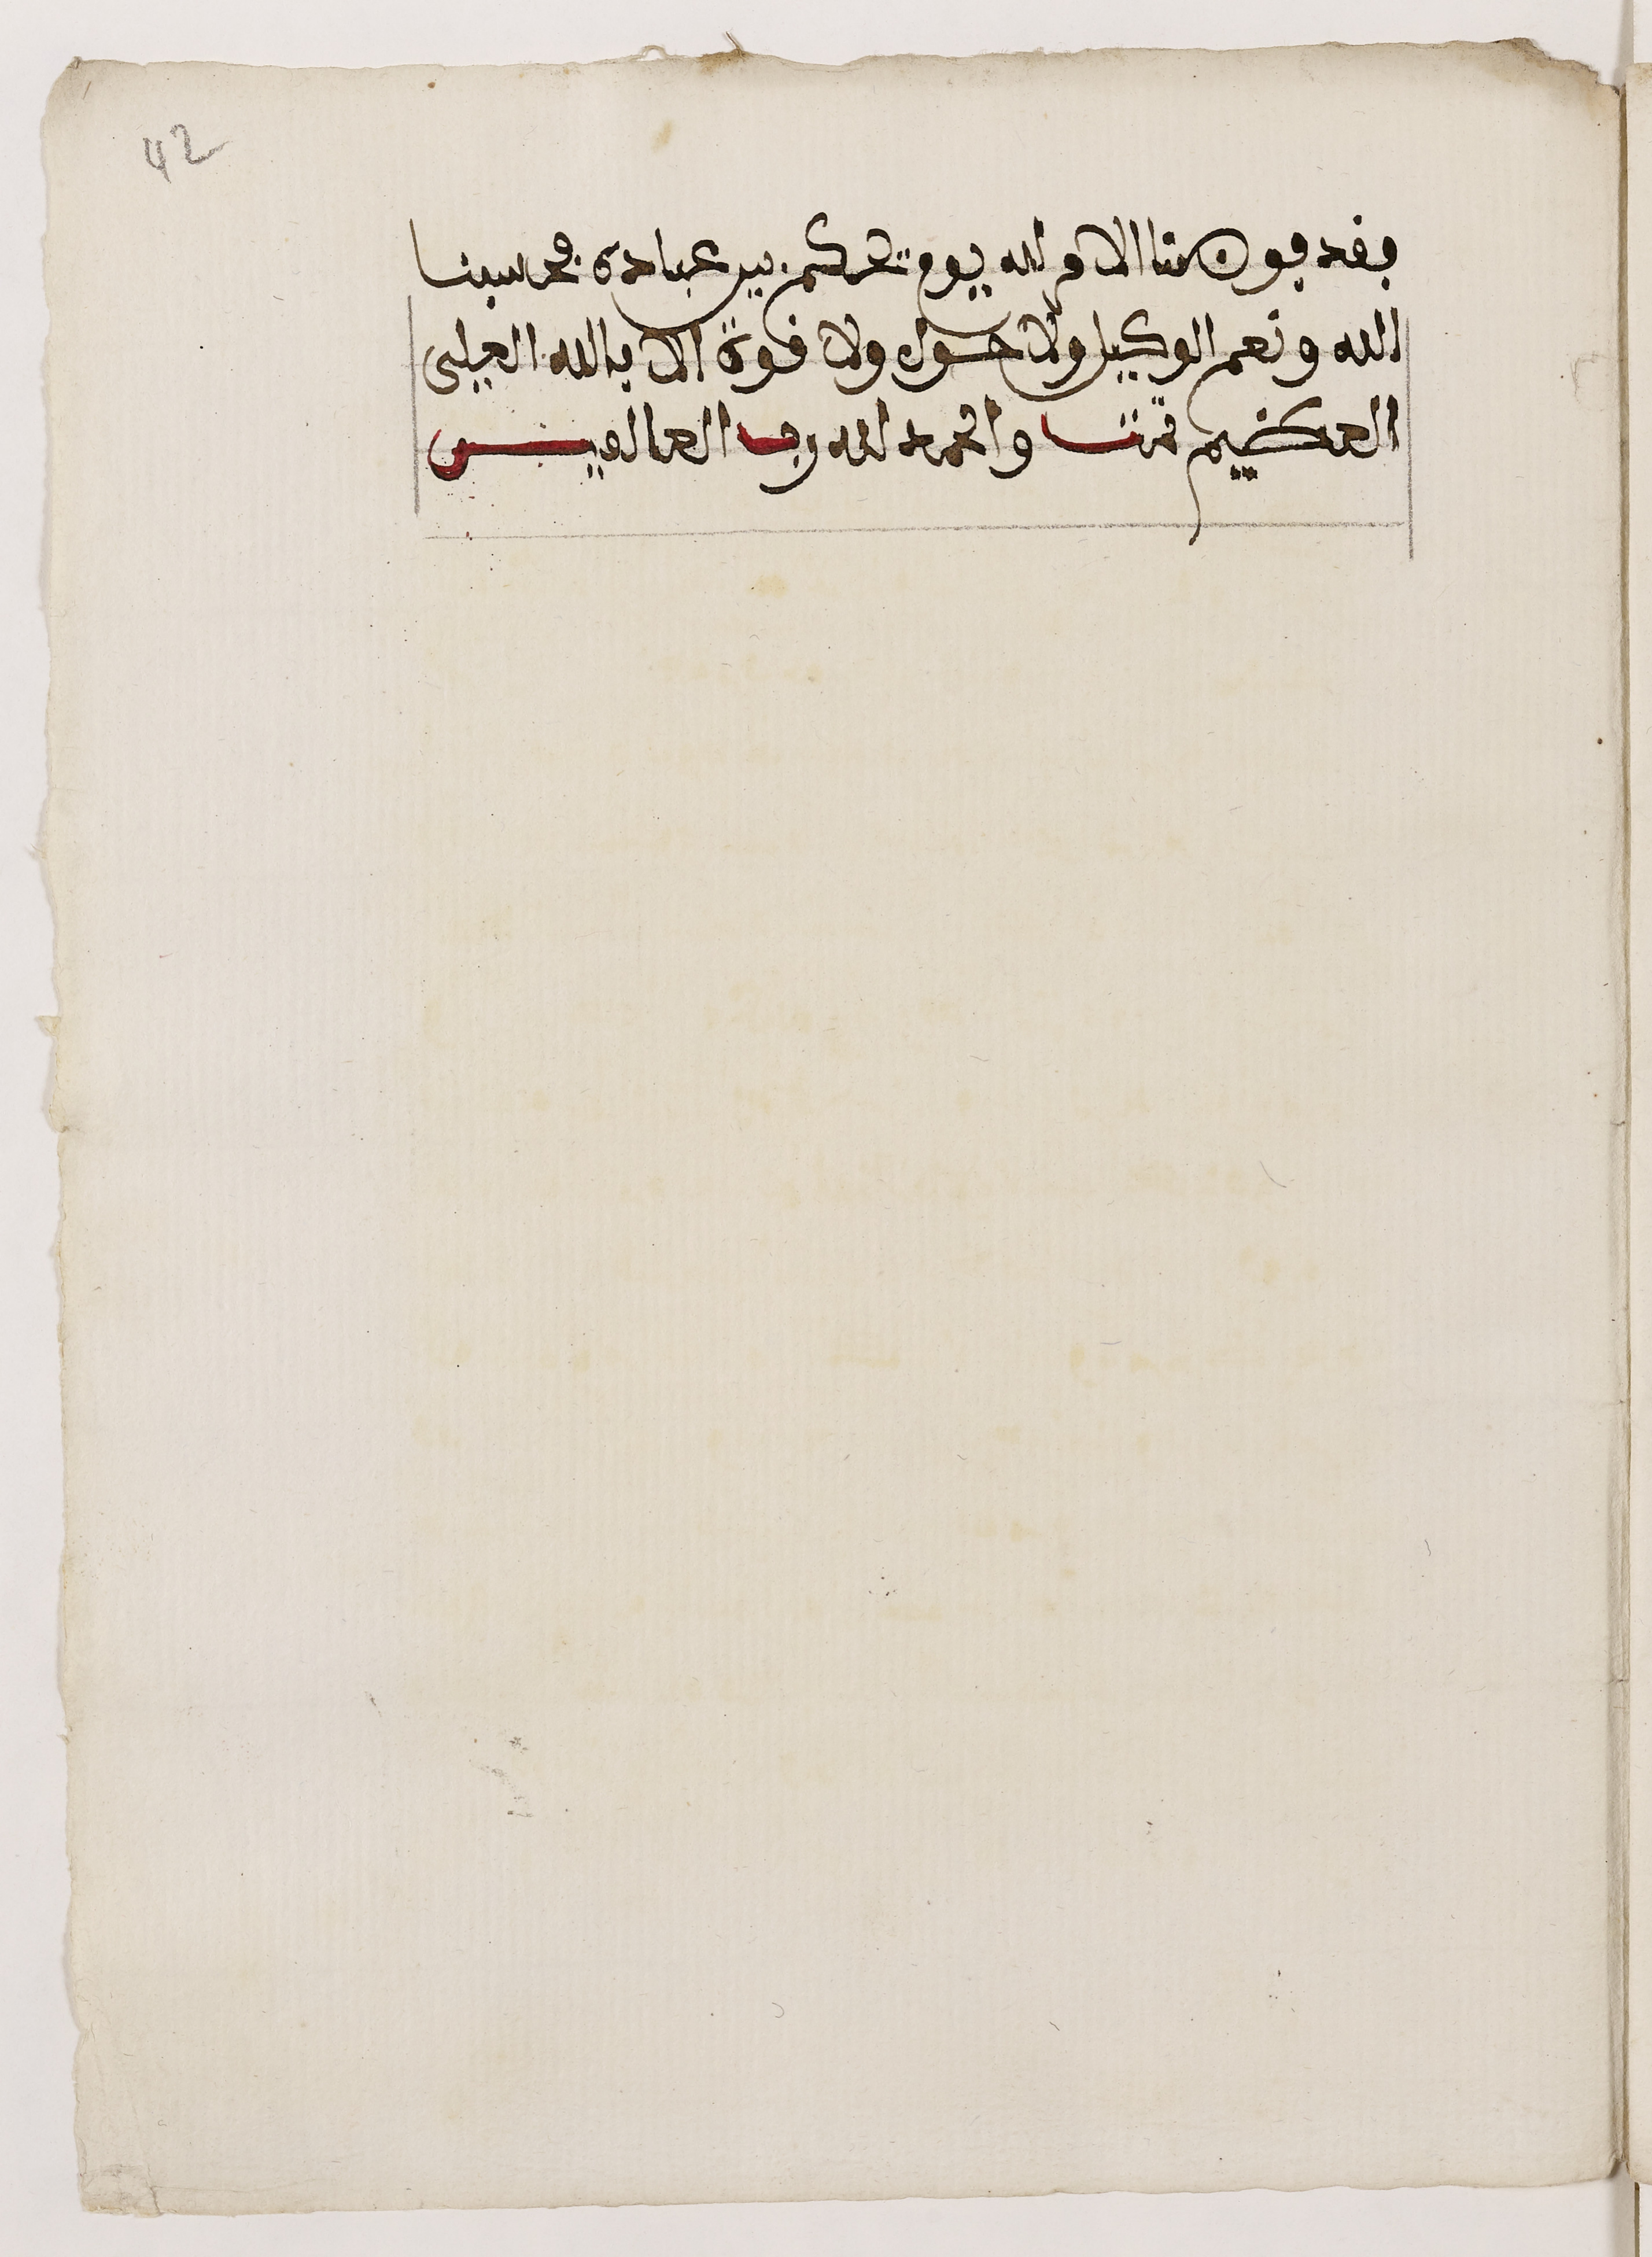 42
فقد فوضنا الامر لله يوم تحكم بين عبادى فحسبنا
الله ونعم الوكيل ولا حول ولا قوة الا بالله العلي
العظيم تمت والحمد لله رب العالمين